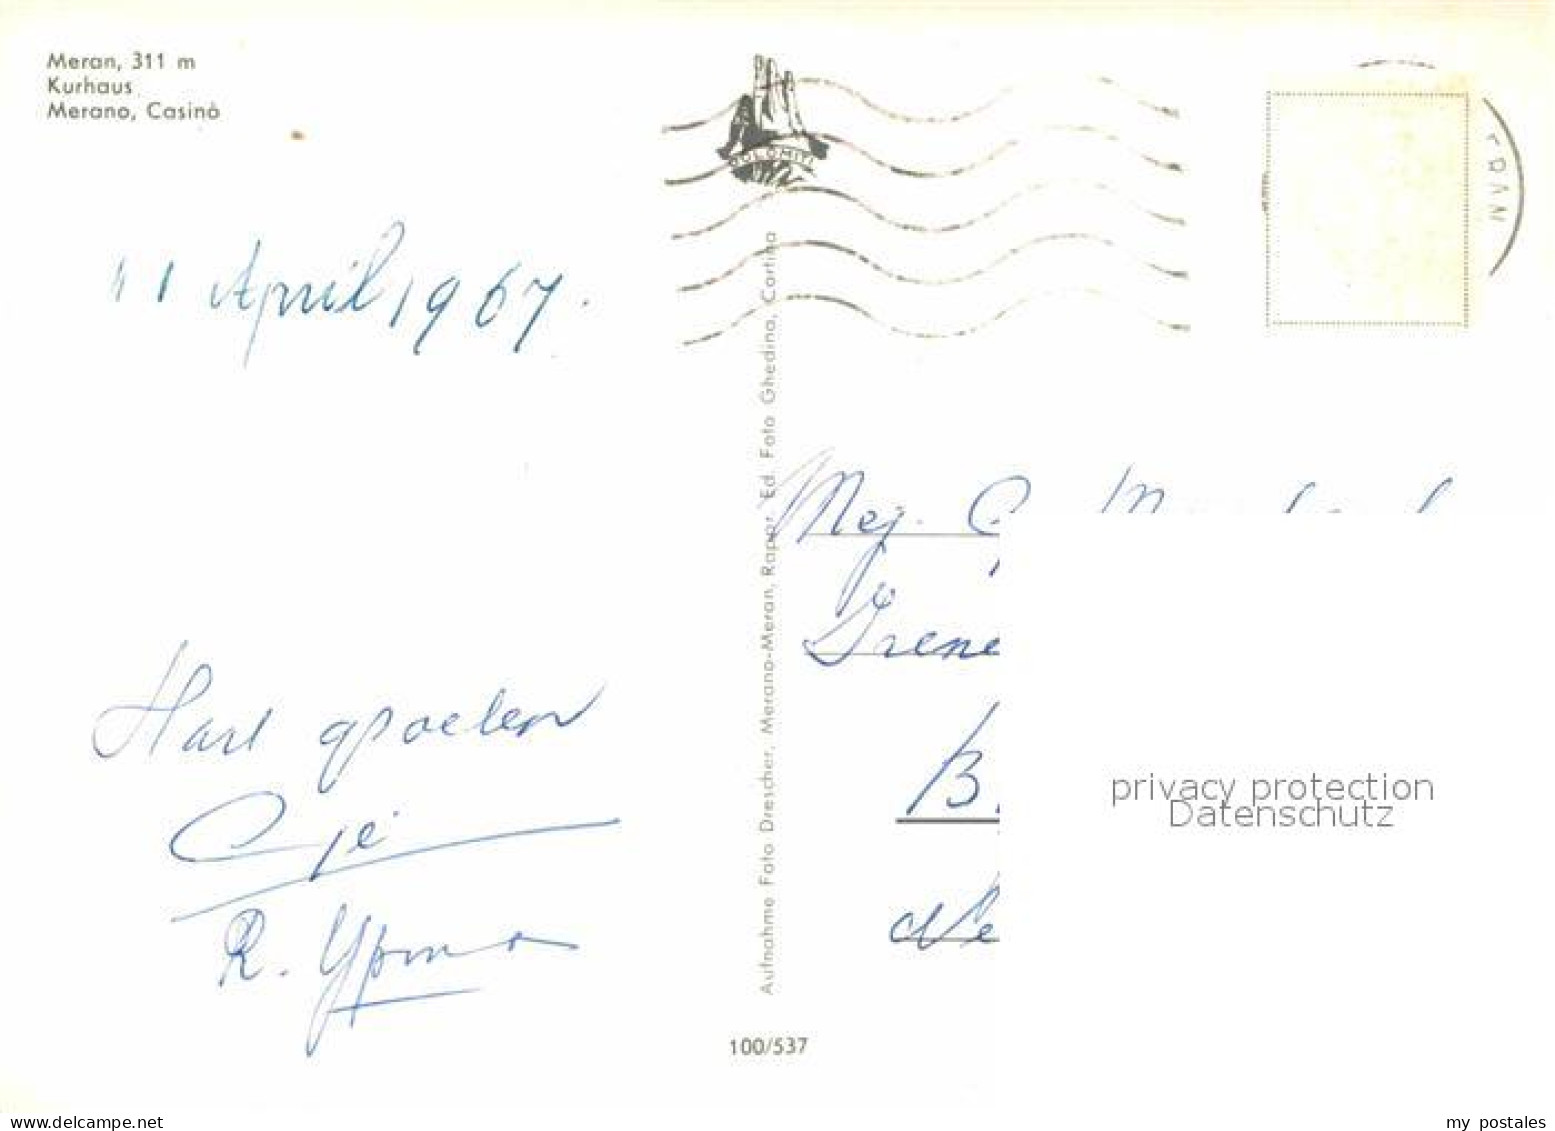 Meran, 311 m
Kurhaus
Merano, Casinò
DOLOMITI
11 April 1967.
Mej.
Irene
B.
Ne
Hart. groeten
R. Ypma
Aufnahme Foto Drescher, Merano-Meran, Rappr. Ed. Foto Ghedina, Cortina
100/537
privacy protection
Datenschutz
www.delcampe.net
my postales